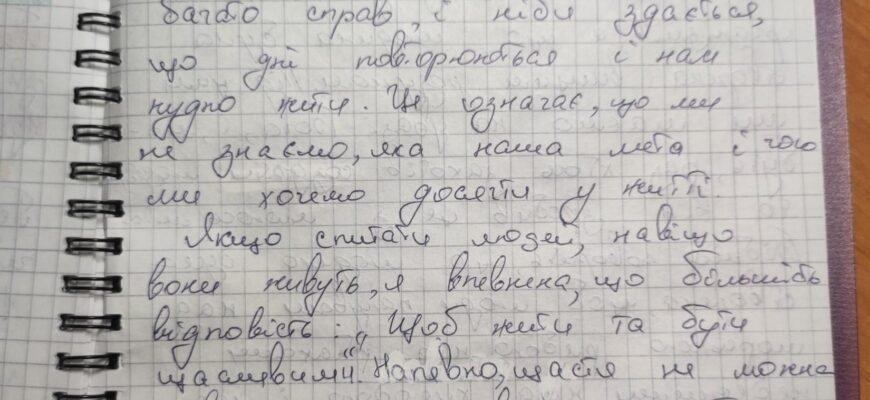 багато справ, і ніби здається,
що дні повторюються і нам
нудно жити. Це означає, що ми
не знаємо, яка наша мета і чого
ми хочемо досягти у житті.
Якщо спитати людей, навіщо
вони живуть, я впевнена, що більшість
відповість: „Щоб жити та бути
щасливими". Напевно, щастя не можна